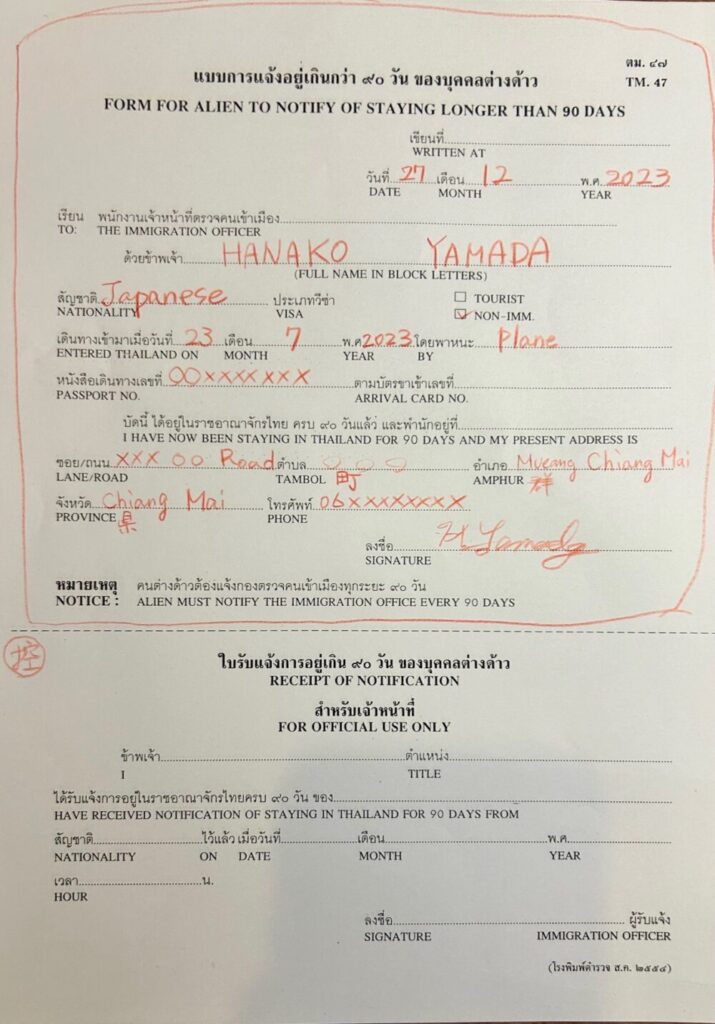 ตม. ๔๗
แบบการแจ้งอยู่เกินกว่า ๙๐ วัน ของบุคคลต่างด้าว TM. 47
FORM FOR ALIEN TO NOTIFY OF STAYING LONGER THAN 90 DAYS
เขียนที่
WRITTEN AT
วันที่ 27 เดือน 12 พ.ศ. 2023
DATE MONTH YEAR
เรียน พนักงานเจ้าหน้าที่ตรวจคนเข้าเมือง
TO: THE IMMIGRATION OFFICER
ด้วยข้าพเจ้า HANAKO YAMADA
(FULL NAME IN BLOCK LETTERS)
สัญชาติ Japanese ประเภทวีซ่า ☐ TOURIST
NATIONALITY VISA ☑ NON-IMM.
เดินทางเข้ามาเมื่อวันที่ 23 เดือน 7 พ.ศ 2023 โดยพาหนะ Plane
ENTERED THAILAND ON MONTH YEAR BY
หนังสือเดินทางเลขที่ 00xxxxxxx ตามบัตรขาเข้าเลขที่
PASSPORT NO. ARRIVAL CARD NO.
บัดนี้ ได้อยู่ในราชอาณาจักรไทย ครบ ๙๐ วันแล้ว และพำนักอยู่ที่
I HAVE NOW BEEN STAYING IN THAILAND FOR 90 DAYS AND MY PRESENT ADDRESS IS
ซอย/ถนน xxx 00 Road ตำบล ○ ○ ○ อำเภอ Mueang Chiang Mai
LANE/ROAD TAMBOL 町 AMPHUR 群
จังหวัด Chiang Mai โทรศัพท์ 06xxxxxxxx
PROVINCE 県 PHONE
ลงชื่อ H.Yamada
SIGNATURE
หมายเหตุ คนต่างด้าวต้องแจ้งกองตรวจคนเข้าเมืองทุกระยะ ๙๐ วัน
NOTICE : ALIEN MUST NOTIFY THE IMMIGRATION OFFICE EVERY 90 DAYS
控
ใบรับแจ้งการอยู่เกิน ๙๐ วัน ของบุคคลต่างด้าว
RECEIPT OF NOTIFICATION
สำหรับเจ้าหน้าที่
FOR OFFICIAL USE ONLY
ข้าพเจ้า ตำแหน่ง
I TITLE
ได้รับแจ้งการอยู่ในราชอาณาจักรไทยครบ ๙๐ วัน ของ
HAVE RECEIVED NOTIFICATION OF STAYING IN THAILAND FOR 90 DAYS FROM
สัญชาติ ไว้แล้ว เมื่อวันที่ เดือน พ.ศ.
NATIONALITY ON DATE MONTH YEAR
เวลา น.
HOUR
ลงชื่อ ผู้รับแจ้ง
SIGNATURE IMMIGRATION OFFICER
(โรงพิมพ์ตำรวจ ส.ค. ๒๕๕๔)